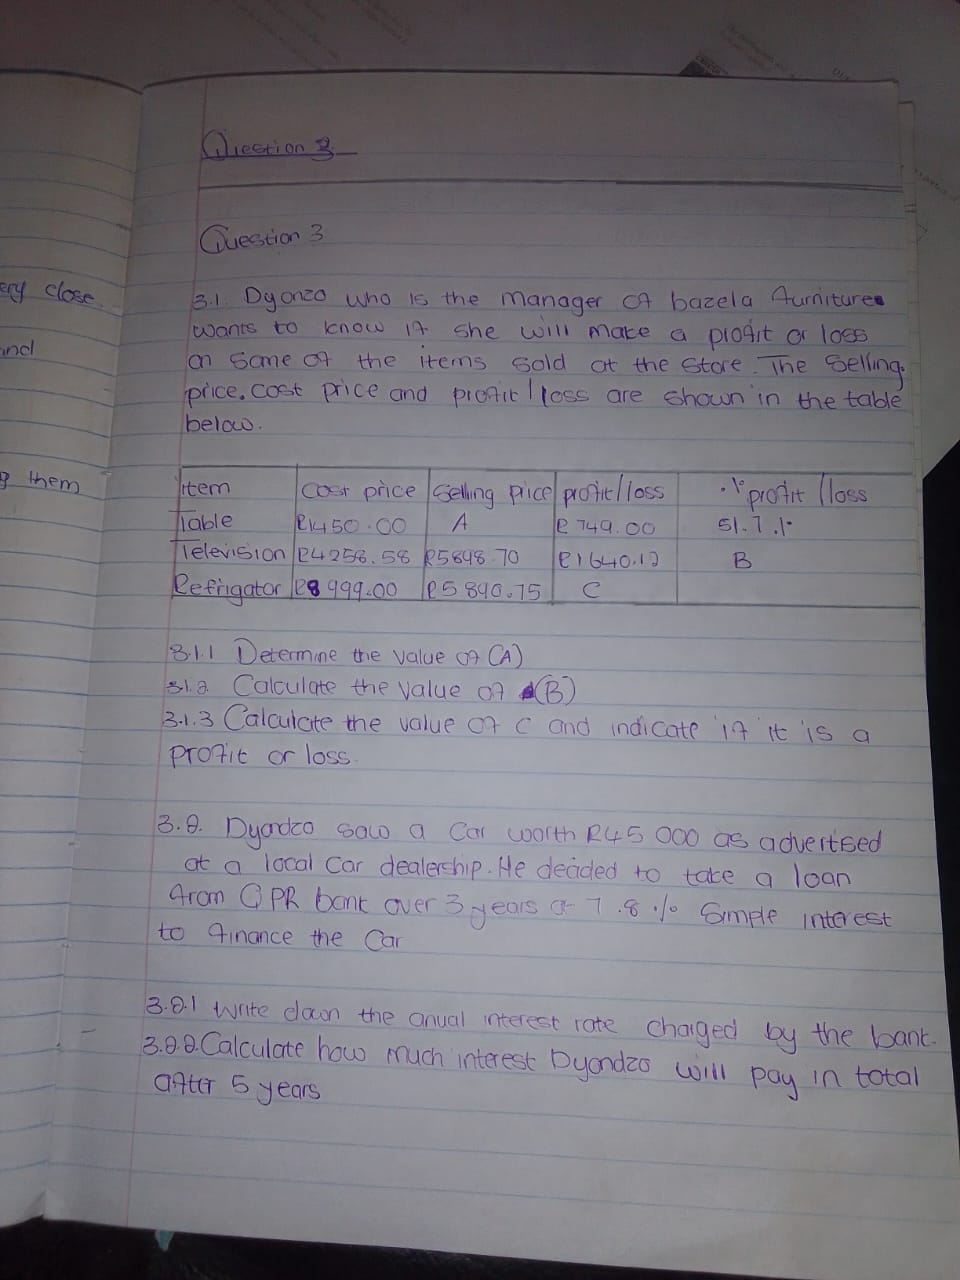 Question 3
Question 3
ery close
3.1. Dyonzo who is the manager of bazela furniture
wants to know if she will make a profit or loss
and
on some of the items sold at the store. The selling
price, cost price and profit / loss are shown in the table
below.
them
Item Cost price Selling price profit/loss % profit /loss
Table R1450.00 A R 749.00 51.7.%
Television R4258.58 R5898.70 R1640.12 B
Refrigator R8 999.00 R5 890.75 C
3.1.1 Determine the value of (A)
3.1.2. Calculate the value of (B)
3.1.3 Calculate the value of C and indicate if it is a
profit or loss.
3.2. Dyondzo saw a car worth R45 000 as advertised
at a local car dealership. He decided to take a loan
from QPR bank over 3 years at 7.8 % Simple interest
to finance the car
3.2.1 Write down the anual interest rate charged by the bank.
3.2.2 Calculate how much interest Dyondzo will pay in total
after 5 years